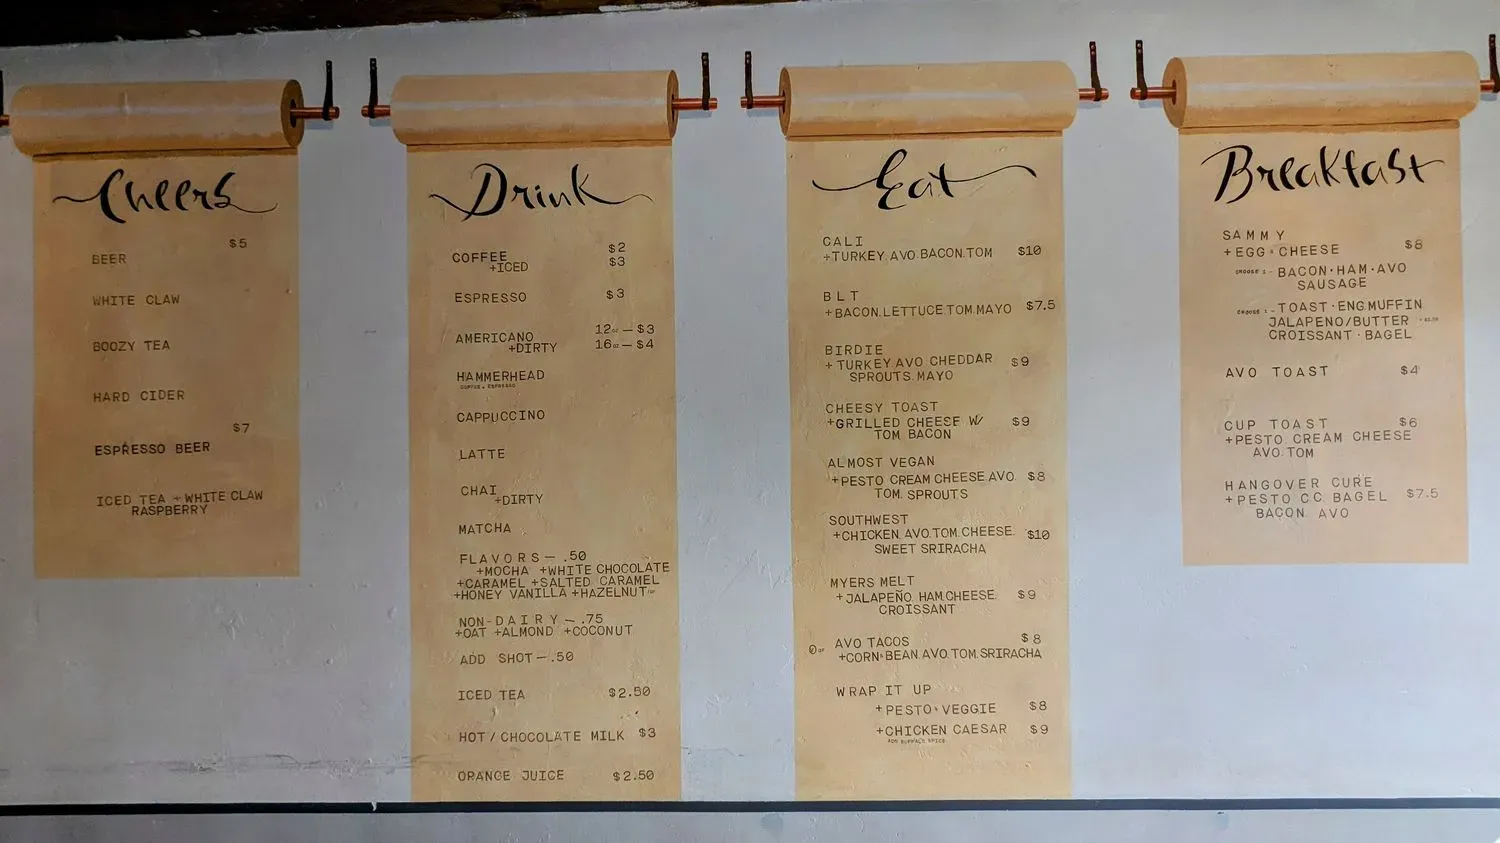 Cheers
$5
BEER
WHITE CLAW
BOOZY TEA
HARD CIDER
$7
ESPRESSO BEER
ICED TEA + WHITE CLAW
RASPBERRY
Drink
COFFEE $2
+ICED $3
ESPRESSO $3
AMERICANO 12oz — $3
+DIRTY 16oz — $4
HAMMERHEAD
COFFEE + ESPRESSO
CAPPUCCINO
LATTE
CHAI
+DIRTY
MATCHA
FLAVORS — .50
+MOCHA +WHITE CHOCOLATE
+CARAMEL +SALTED CARAMEL
+HONEY VANILLA +HAZELNUT
NON-DAIRY — .75
+OAT +ALMOND +COCONUT
ADD SHOT — .50
ICED TEA $2.50
HOT / CHOCOLATE MILK $3
ORANGE JUICE $2.50
Eat
CALI
+TURKEY.AVO.BACON.TOM $10
BLT
+BACON.LETTUCE.TOM.MAYO $7.5
BIRDIE
+TURKEY.AVO.CHEDDAR $9
SPROUTS.MAYO
CHEESY TOAST
+GRILLED CHEESE W/ $9
TOM.BACON
ALMOST VEGAN
+PESTO CREAM CHEESE.AVO $8
TOM.SPROUTS
SOUTHWEST
+CHICKEN.AVO.TOM.CHEESE. $10
SWEET SRIRACHA
MYERS MELT
+JALAPEÑO.HAM.CHEESE. $9
CROISSANT
AVO TACOS $8
+CORN·BEAN.AVO.TOM.SRIRACHA
WRAP IT UP
+PESTO·VEGGIE $8
+CHICKEN CAESAR $9
ADD BUFFALO SPICE
Breakfast
SAMMY
+EGG·CHEESE $8
CHOOSE 1 - BACON·HAM·AVO
SAUSAGE
CHOOSE 1 - TOAST·ENG.MUFFIN
JALAPENO/BUTTER
CROISSANT·BAGEL
AVO TOAST $4
CUP TOAST $6
+PESTO CREAM CHEESE
AVO.TOM
HANGOVER CURE
+PESTO C.C. BAGEL $7.5
BACON. AVO